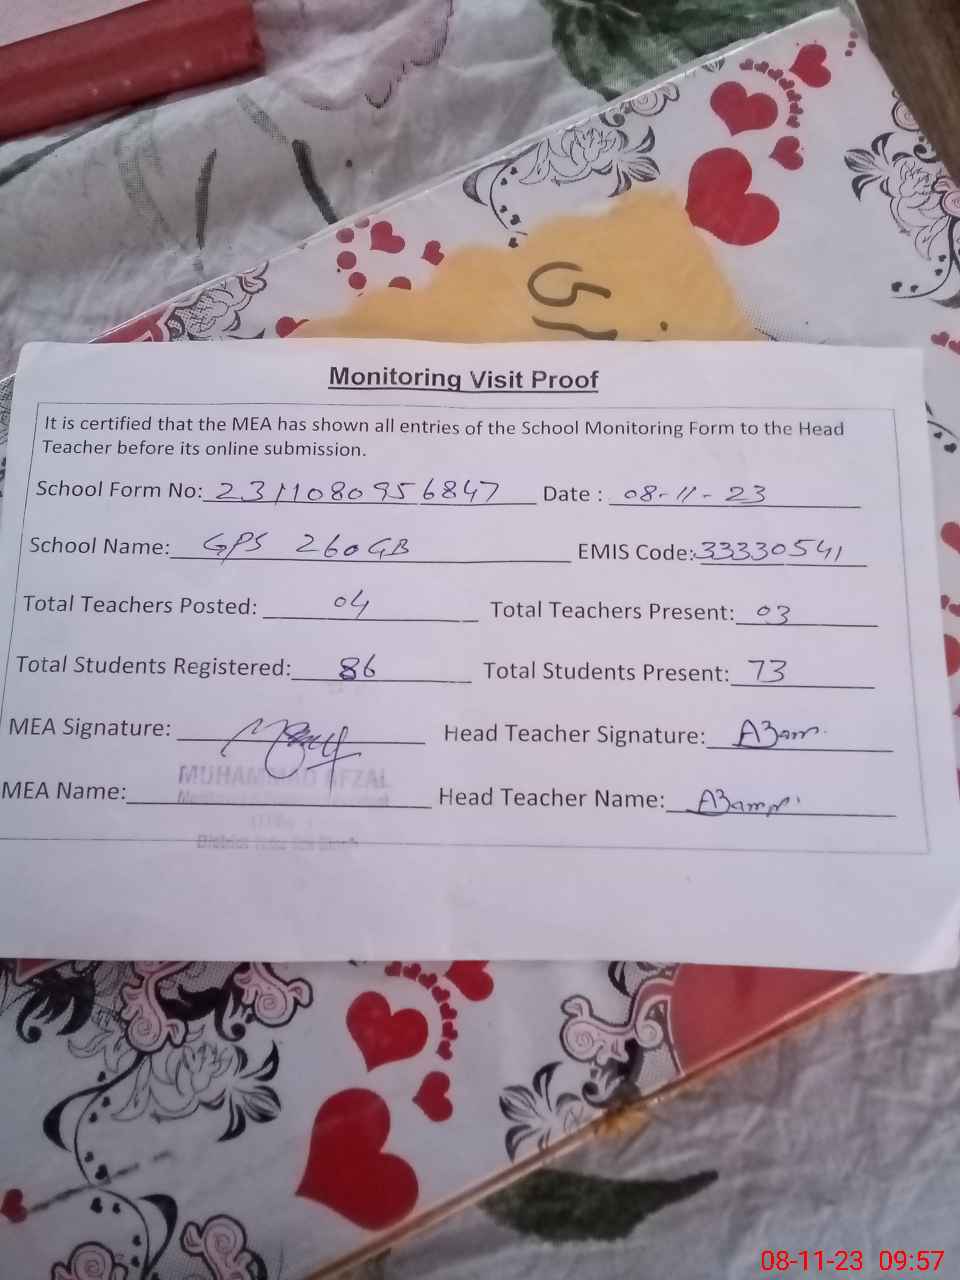 Monitoring Visit Proof
It is certified that the MEA has shown all entries of the School Monitoring Form to the Head
Teacher before its online submission.
School Form No: 2311080956847 Date : 08-11-23
School Name: GPS 260 GB EMIS Code: 33330541
Total Teachers Posted: 04 Total Teachers Present: 03
Total Students Registered: 86 Total Students Present: 73
MEA Signature: Head Teacher Signature: Azam
MUHAMMAD AFZAL
MEA Name: Head Teacher Name: Azam
08-11-23 09:57